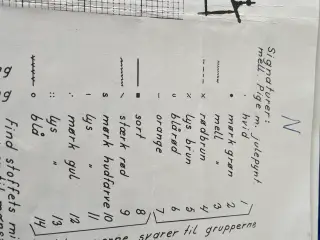 N
Signaturer:
mell. Pige m. julepynt.
. hvid 1
• mørk grøn 2
mell " 3
x rødbrun 4
× lys brun 5
c blårød 6
– orange 7
▪ sort 8
\ stærk rød 9
s mørk hudfarve 10
ı lys " 11
∴ mørk gul 12
:: lys " 13
o blå 14
svarer til grupperne
Find stoffets mi